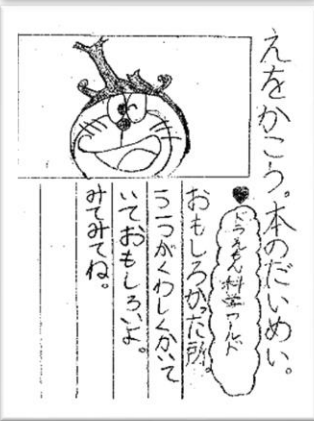 えをかこう。本のだいめい。
ドラえもん科学ワールド
おもしろかった所。
がくわしくかいて
いておもしろいよ。
みてみてね。